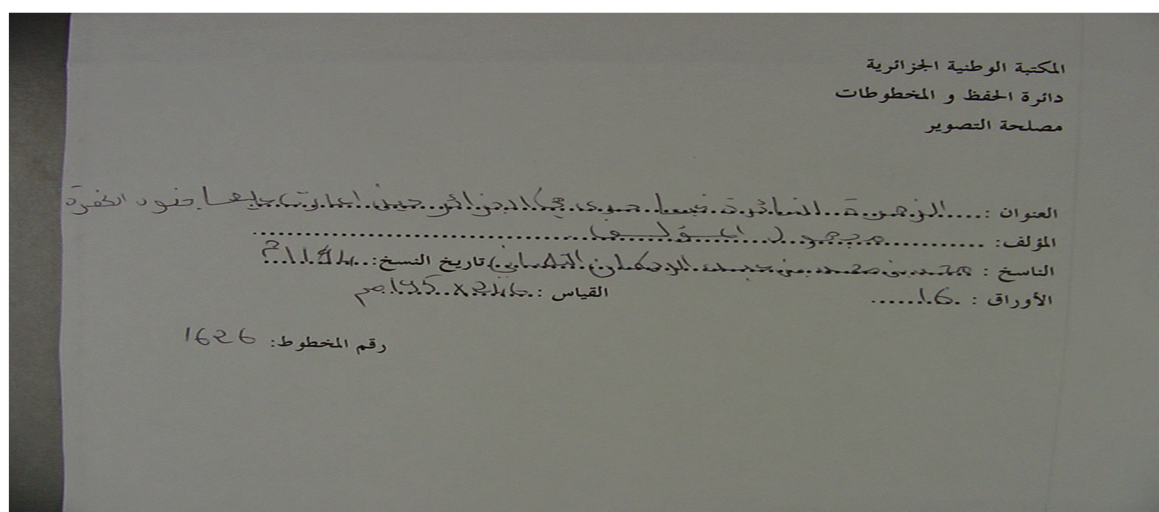 المكتبة الوطنية الجزائرية
دائرة الحفظ و المخطوطات
مصلحة التصوير
العنوان : الزهرة النائرة فيما جرى في الجزائر حين أغارت عليها جنود الكفرة
المؤلف: مجهول المؤلف
الناسخ : محمد بن محمد بن عبد الرحمان التلمساني تاريخ النسخ:
الأوراق : 16 القياس : مم
رقم المخطوط: 1626